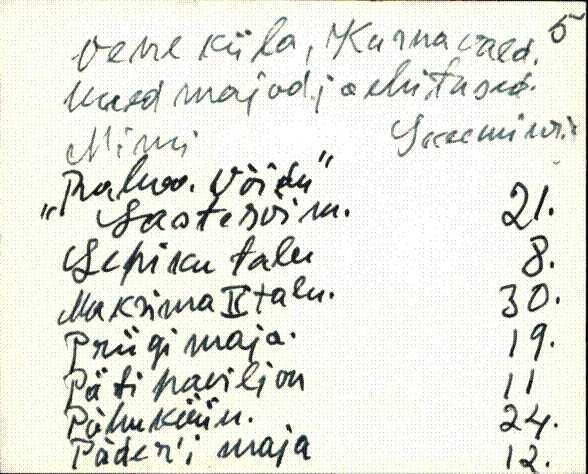 5
Vene küla, Kurna vald.
Uued majad, ehitused.
Nimi
"Rahva. Võidu"
Lastesõim. 21.
Lepiku talu 8.
Maksima II talu. 30.
Priigi maja. 19.
Päti paviljon 11
Põhuküün. 24.
Päderi maja 12.